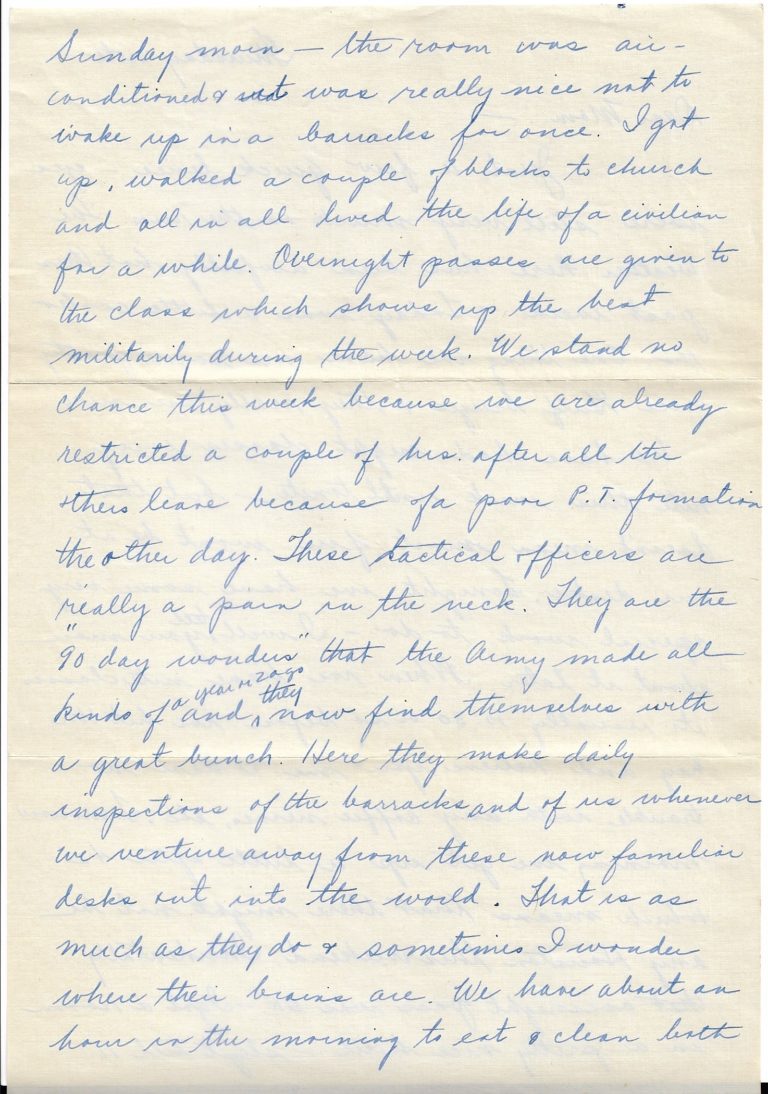 Sunday morn — the room was air-
conditioned & it was really nice not to
wake up in a barracks for once. I got
up, walked a couple of blocks to church
and all in all lived the life of a civilian
for a while. Overnight passes are given to
the class which shows up the best
militarily during the week. We stand no
chance this week because we are already
restricted a couple of hrs. after all the
others leave because of a poor P.T. formation
the other day. These tactical officers are
really a pain in the neck. They are the
"90 day wonders" that the Army made all
kinds of a year or 2 ago and they now find themselves with
a great bunch. Here they make daily
inspections of the barracks and of us whenever
we venture away from these now familiar
desks out into the world. That is as
much as they do & sometimes I wonder
where their brains are. We have about an
hour in the morning to eat & clean both